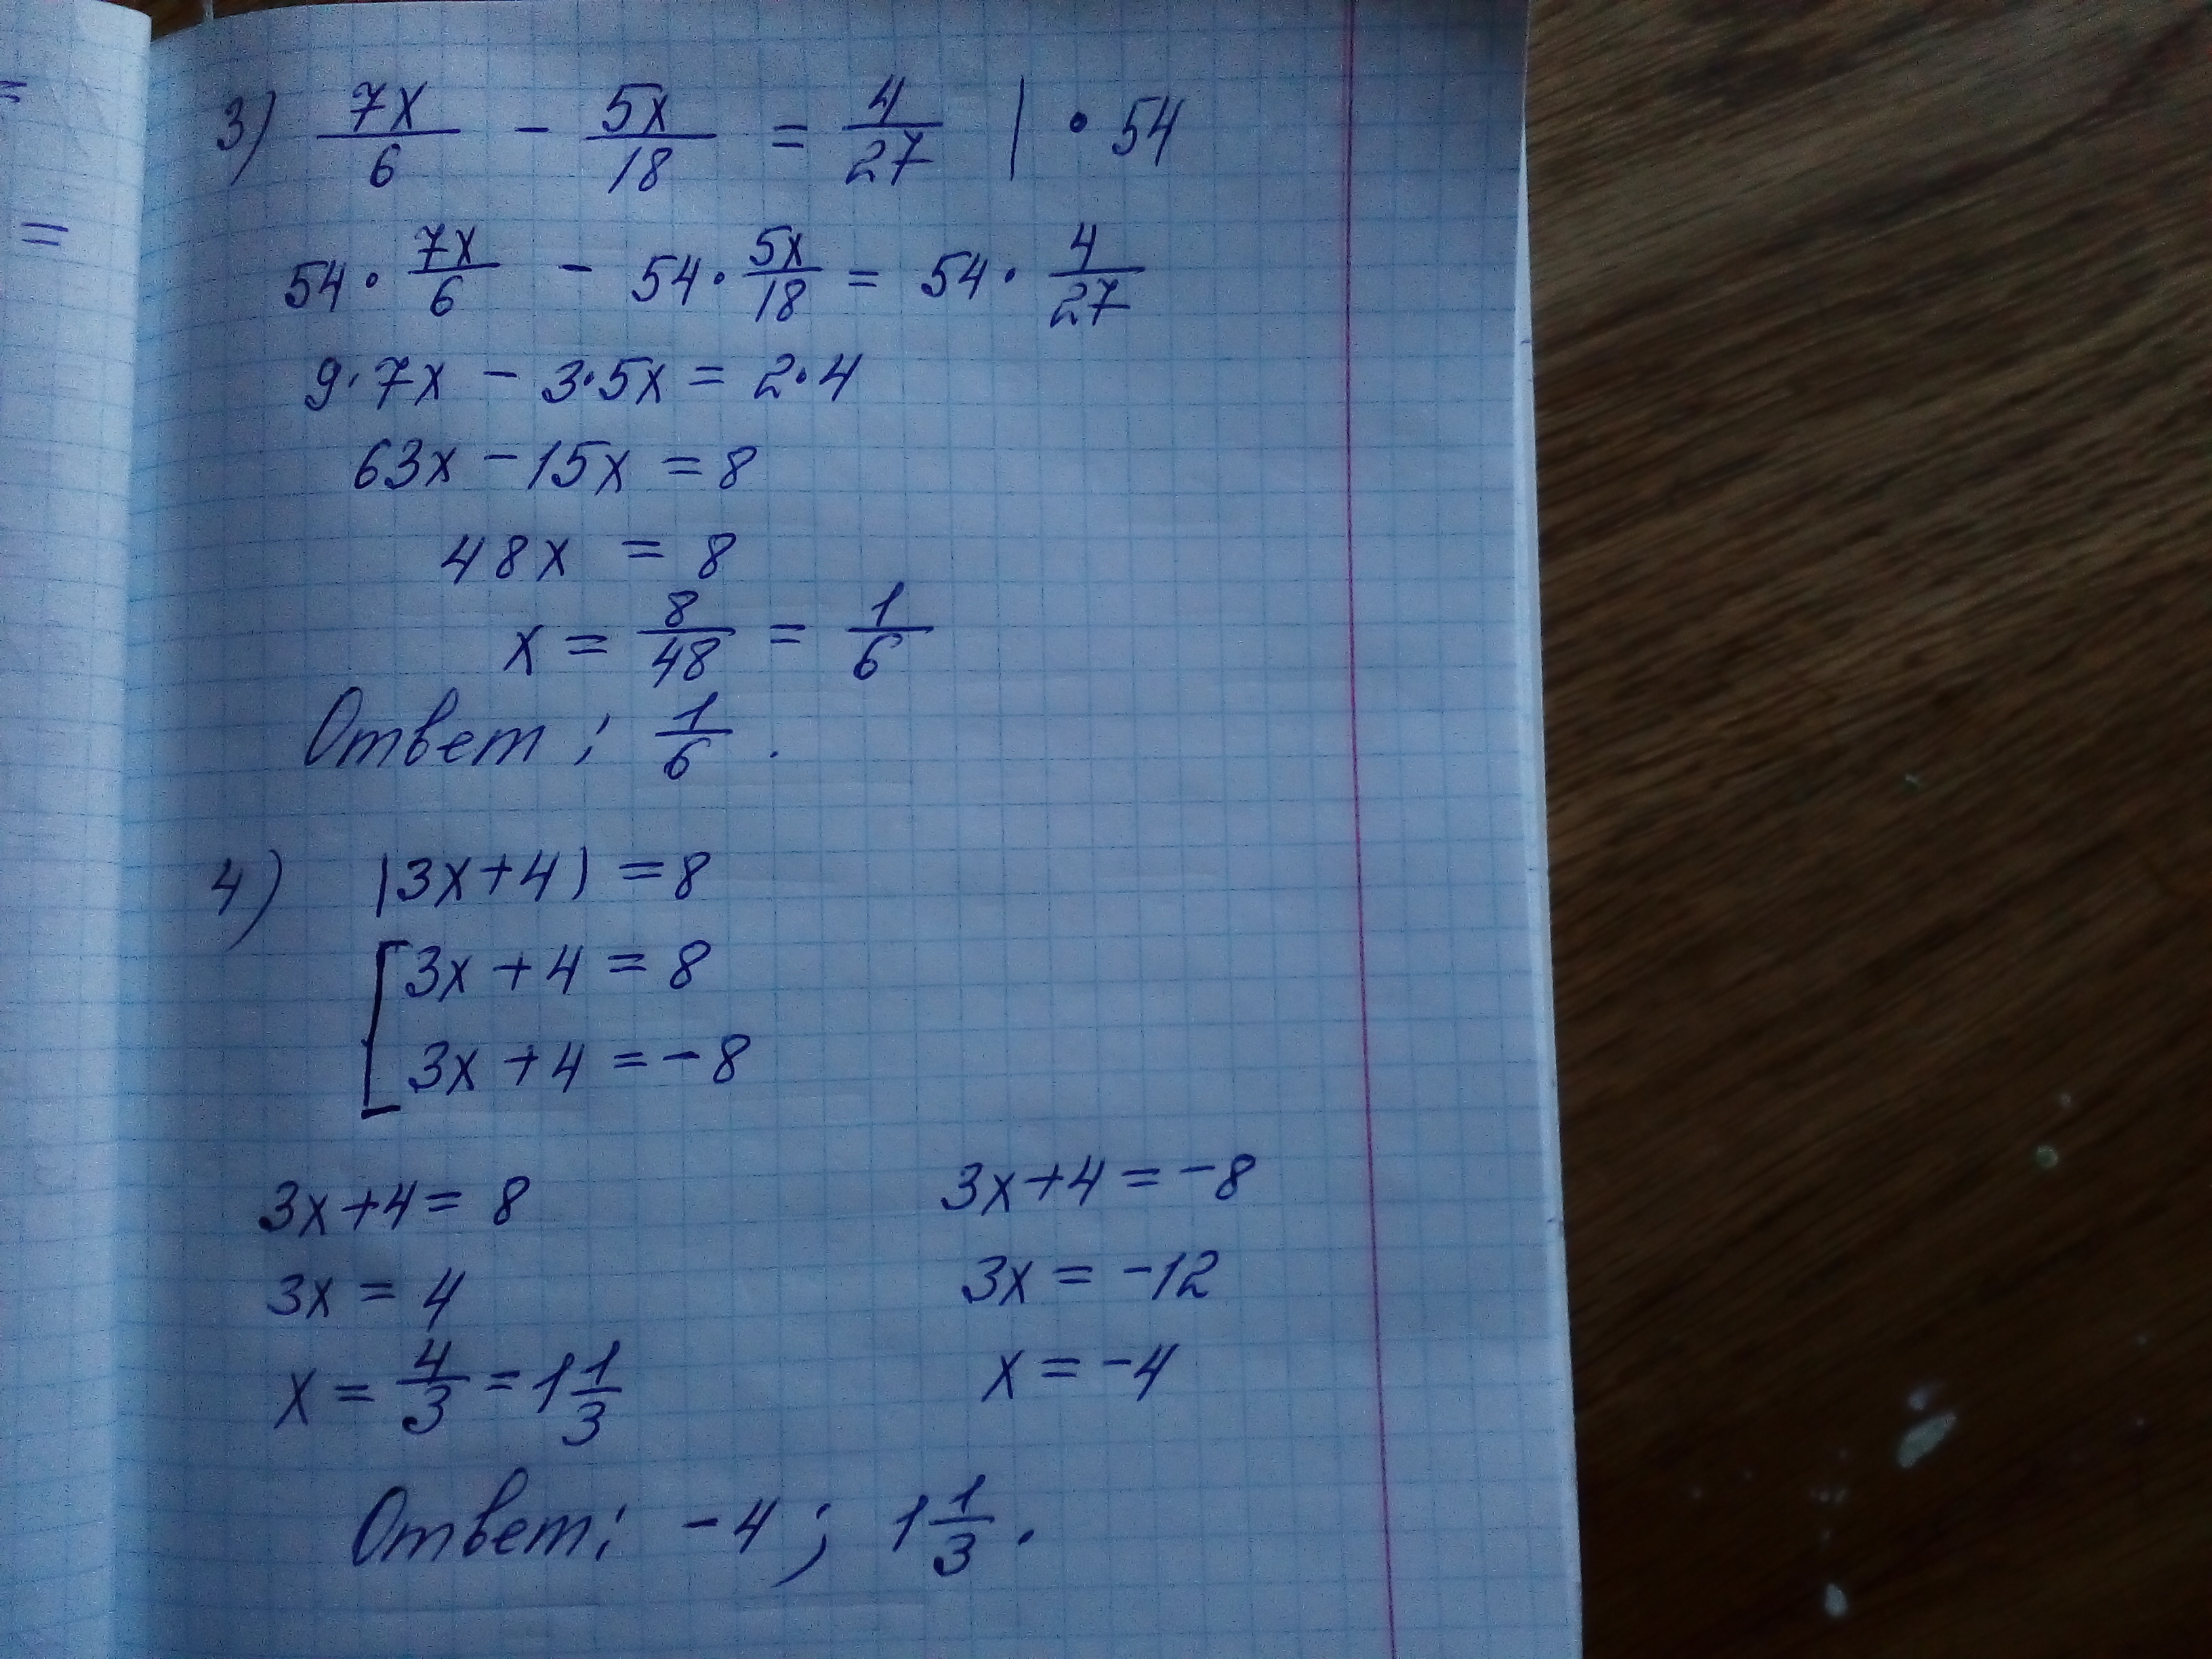 =
3) 7x/6 - 5x/18 = 4/27 | • 54
=
54 • 7x/6 - 54 • 5x/18 = 54 • 4/27
9•7x - 3•5x = 2•4
63x - 15x = 8
48x = 8
x = 8/48 = 1/6
Ответ: 1/6.
4) |3x+4| = 8
[3x + 4 = 8
3x + 4 = -8
3x+4 = 8 3x+4 = -8
3x = 4 3x = -12
x = 4/3 = 1 1/3 x = -4
Ответ: -4; 1 1/3.